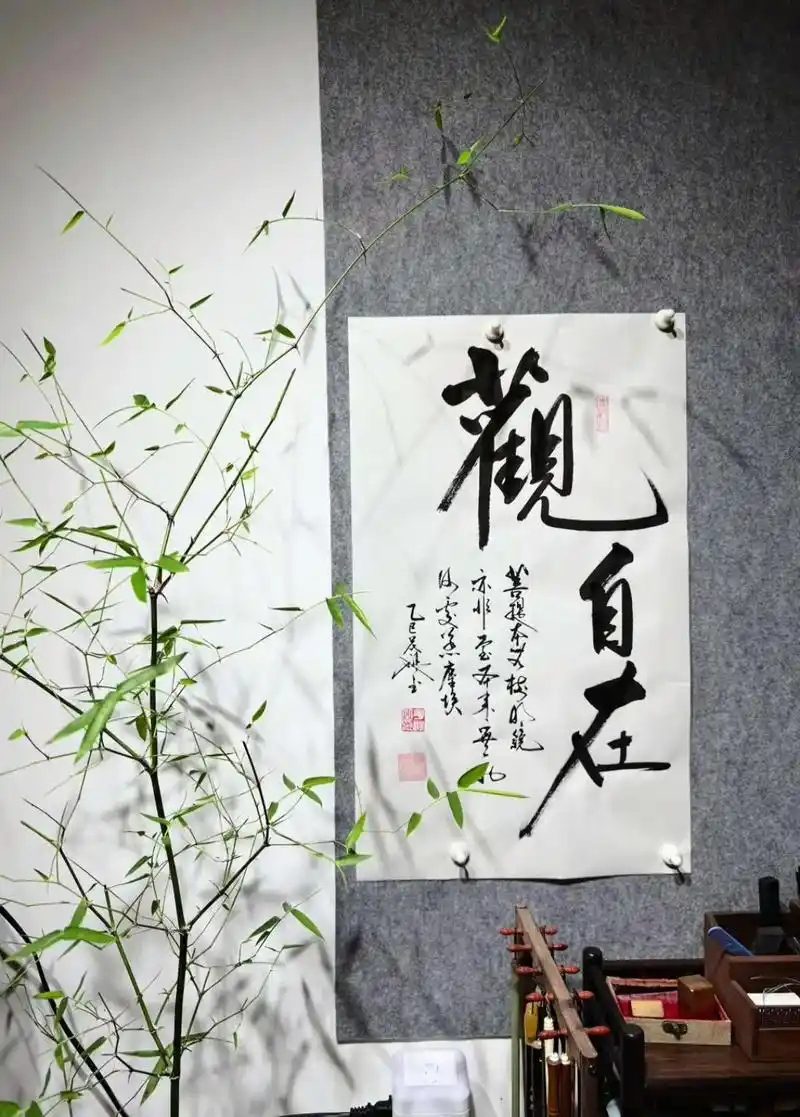 觀
自
在
菩提本无樹明鏡
亦非臺本來無一物
何處惹塵埃
乙巳 書